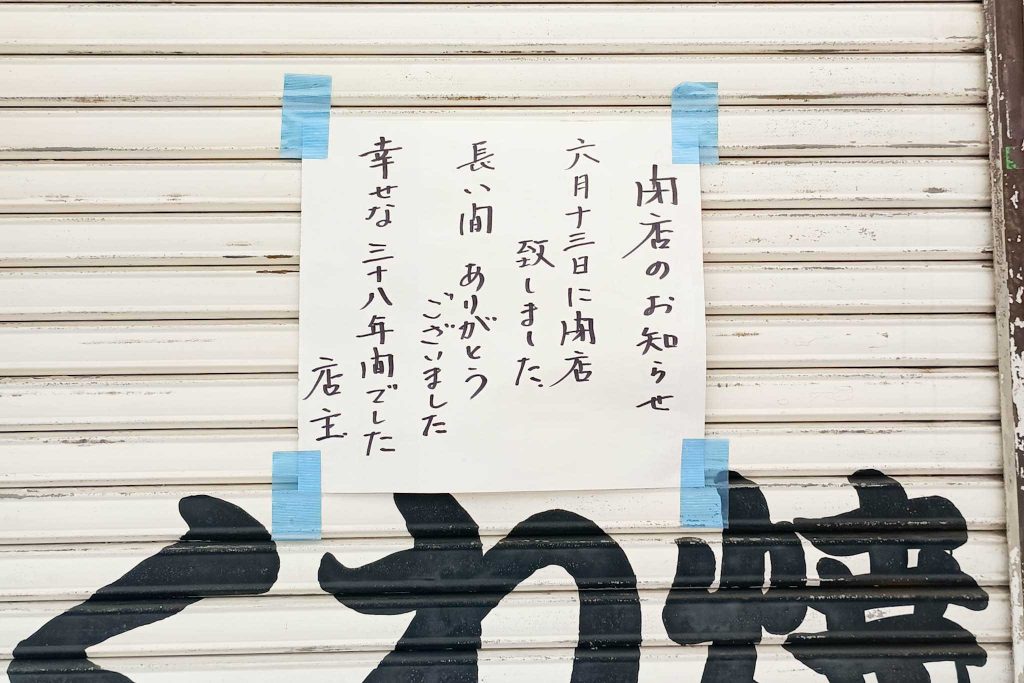 閉店のお知らせ
六月十三日に閉店
致しました。
長い間 ありがとう
ございました
幸せな 三十八年間でした
店主
くわ焼